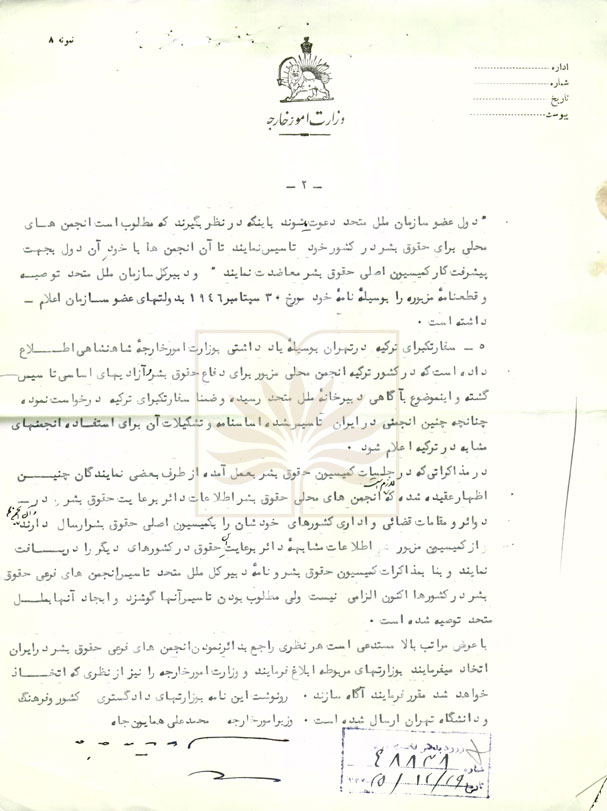 نمونه ۸
اداره
شماره
تاریخ
پیوست
وزارت امور خارجه
ــ ۲ ــ
" دول عضو سازمان ملل متحد دعوت بشوند باینکه در نظر بگیرند که مطلوب است انجمن های
محلی برای حقوق بشر در کشور خود تاسیس نمایند تا آن انجمن ها با خود آن دول بجهت
پیشرفت کار کمیسیون اصلی حقوق بشر معاضدت نمایند " و دبیر کل سازمان ملل متحد توصیه
و قطعنامهٔ مزبوره را بوسیلهٔ نامهٔ خود مورخ ۳۰ سپتامبر ۱۹۴۶ بدولتهای عضو سازمان اعلام ــ
داشته است ۰
۵ ــ سفارتکبرای ترکیه در تهران بوسیلهٔ یاد داشتی بوزارت امور خارجهٔ شاهنشاهی اطــلاع
داده است که در کشور ترکیه انجمن محلی مزبور برای دفاع حقوق بشر و آزادیهای اساسی تاسیس
گشته و اینموضوع بآگاهی دبیرخانهٔ ملل متحد رسیده و ضمنا سفارتکبرای ترکیه درخواست نموده
چنانچه چنین انجمنی در ایران تاسیس شده اساسنامه و تشکیلات آن برای استفاده انجمنهای
مشابه در ترکیه اعلام شود ۰
در مذاکراتی که در جلسات کمیسیون حقوق بشر بعمل آمده از طرف بعضی نمایندگان چنیــن
اظهار عقیده شده که انجمن های محلی حقوق بشر اطلاعات دائر برعایت حقوق بشر در ــ
دوائر و مقامات قضائی و اداری کشورهای خودشان را بکمیسیون اصلی حقوق بشر ارسال دارند
و از کمیسیون مزبور اطلاعات مشابهه دائر برعایت حقوق در کشورهای دیگر را دریــافت
نمایند و بنا بمذاکرات کمیسیون حقوق بشر و نامهٔ دبیر کل ملل متحد تاسیس انجمن های فرعی حقوق
بشر در کشورها اکنون الزامی نیست ولی مطلوب بودن تاسیس آنها گوشزد و ایجاد آنها بملــل
متحد توصیه شده است ۰
با عرض مراتب بالا مستدعی است هر نظری راجع بدائر نمودن انجمن های فرعی حقوق بشر در ایران
اتخاذ میفرمایند بوزارتهای مربوطه ابلاغ فرمایند و وزارت امور خارجه را نیز از نظری که اتخــاذ
خواهد شد مقرر فرمایند آگاه سازند ۰ رونوشت این نامه بوزارتهای دادگستری کشور و فرهنگ
و دانشگاه تهران ارسال شده است ۰ وزیر امور خارجه محمد علی همایون جاه
شماره ۴۸۸۳۸